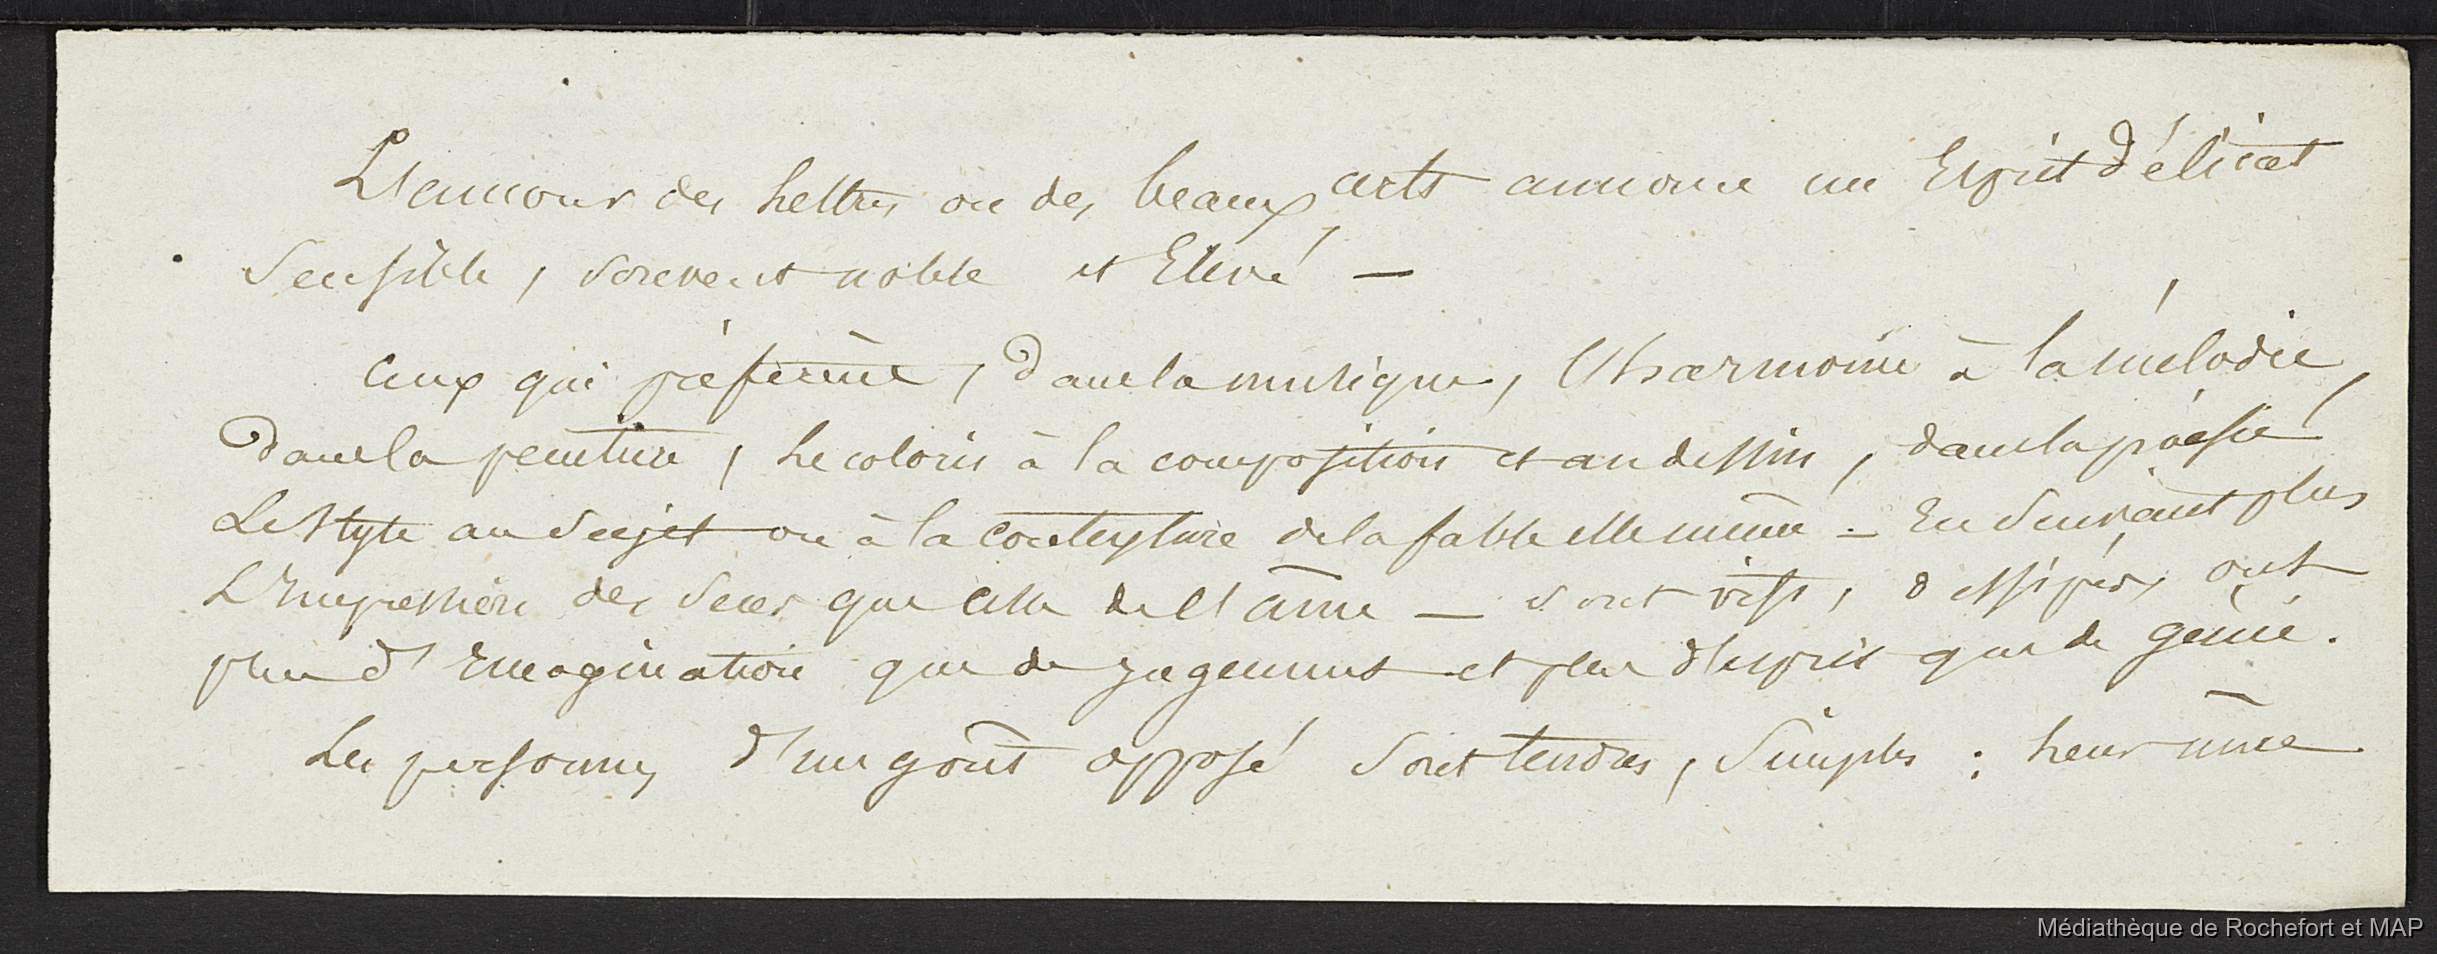 L'amour des Lettres ou des beaux arts annonce un Esprit délicat
Sensible, souvent noble et Elevé —
Ceux qui préferent, dans la musique, l'harmonie à la mélodie,
dans la peinture, le coloris à la composition et au dessin, dans la poésie
Le style au sujet ou à la contexture de la fable elle même — En suivant plus
L'Impression des sens que celle de l'âme — sont vifs, dissipés, ont
plus d'Imagination que de jugement et plus d'esprit que de génie.
Les personnes d'un goût opposé sont tendres, simples ; leur
Médiathèque de Rochefort et MAP